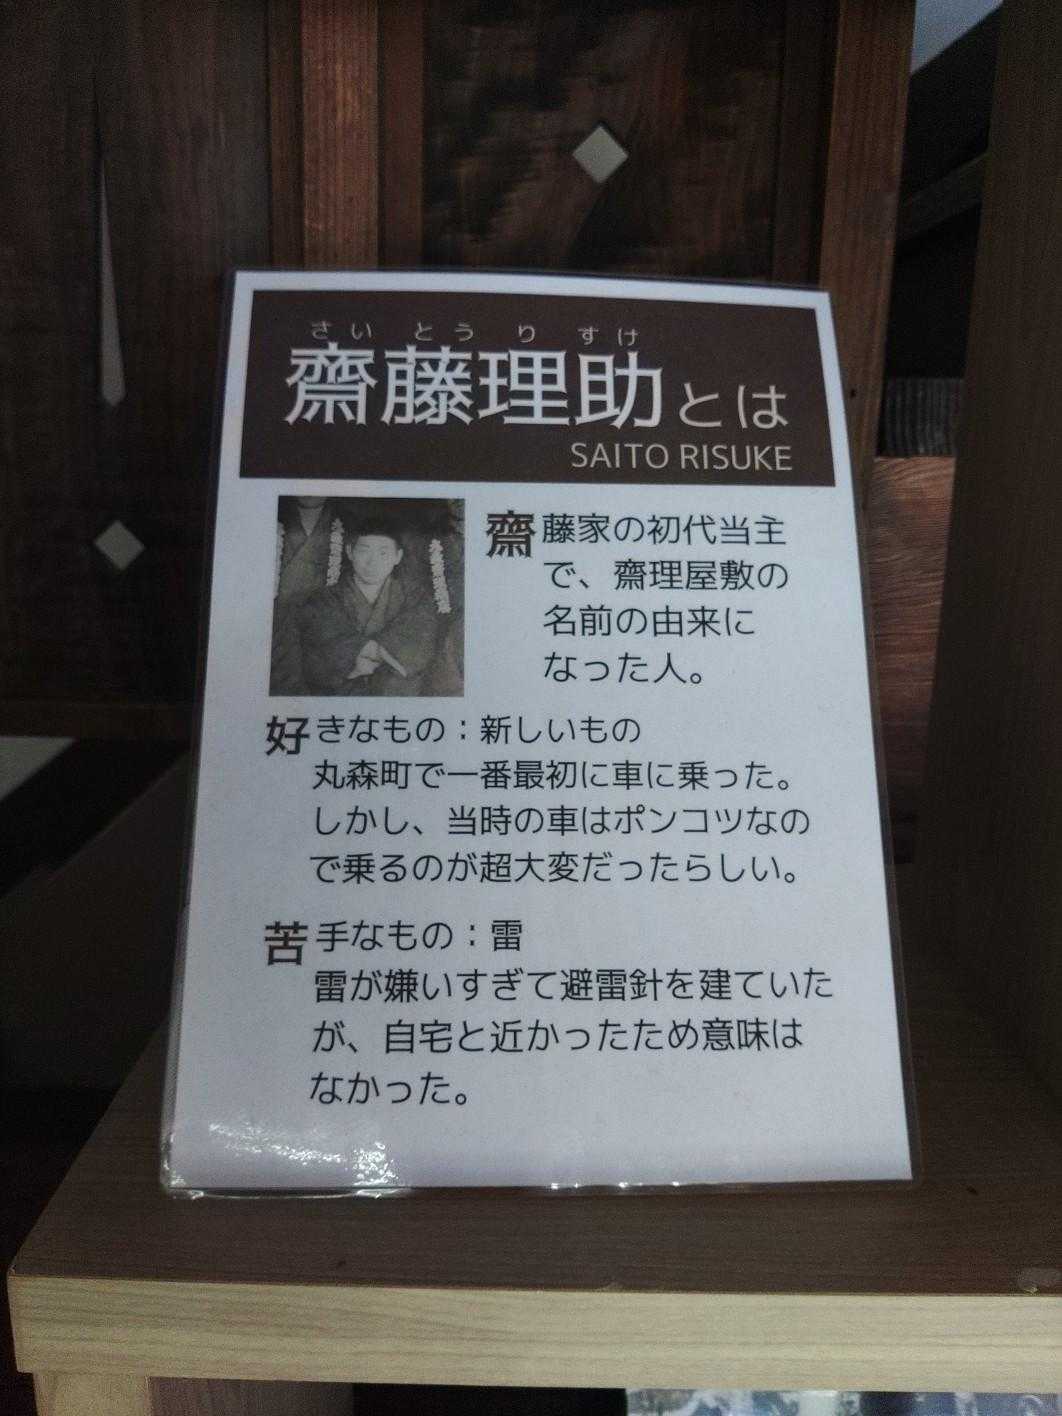 さいとうりすけ
齋藤理助とは
SAITO RISUKE
齋藤家の初代当主
で、齋理屋敷の
名前の由来に
なった人。
好きなもの：新しいもの
丸森町で一番最初に車に乗った。
しかし、当時の車はポンコツなの
で乗るのが超大変だったらしい。
苦手なもの：雷
雷が嫌いすぎて避雷針を建てていた
が、自宅と近かったため意味は
なかった。